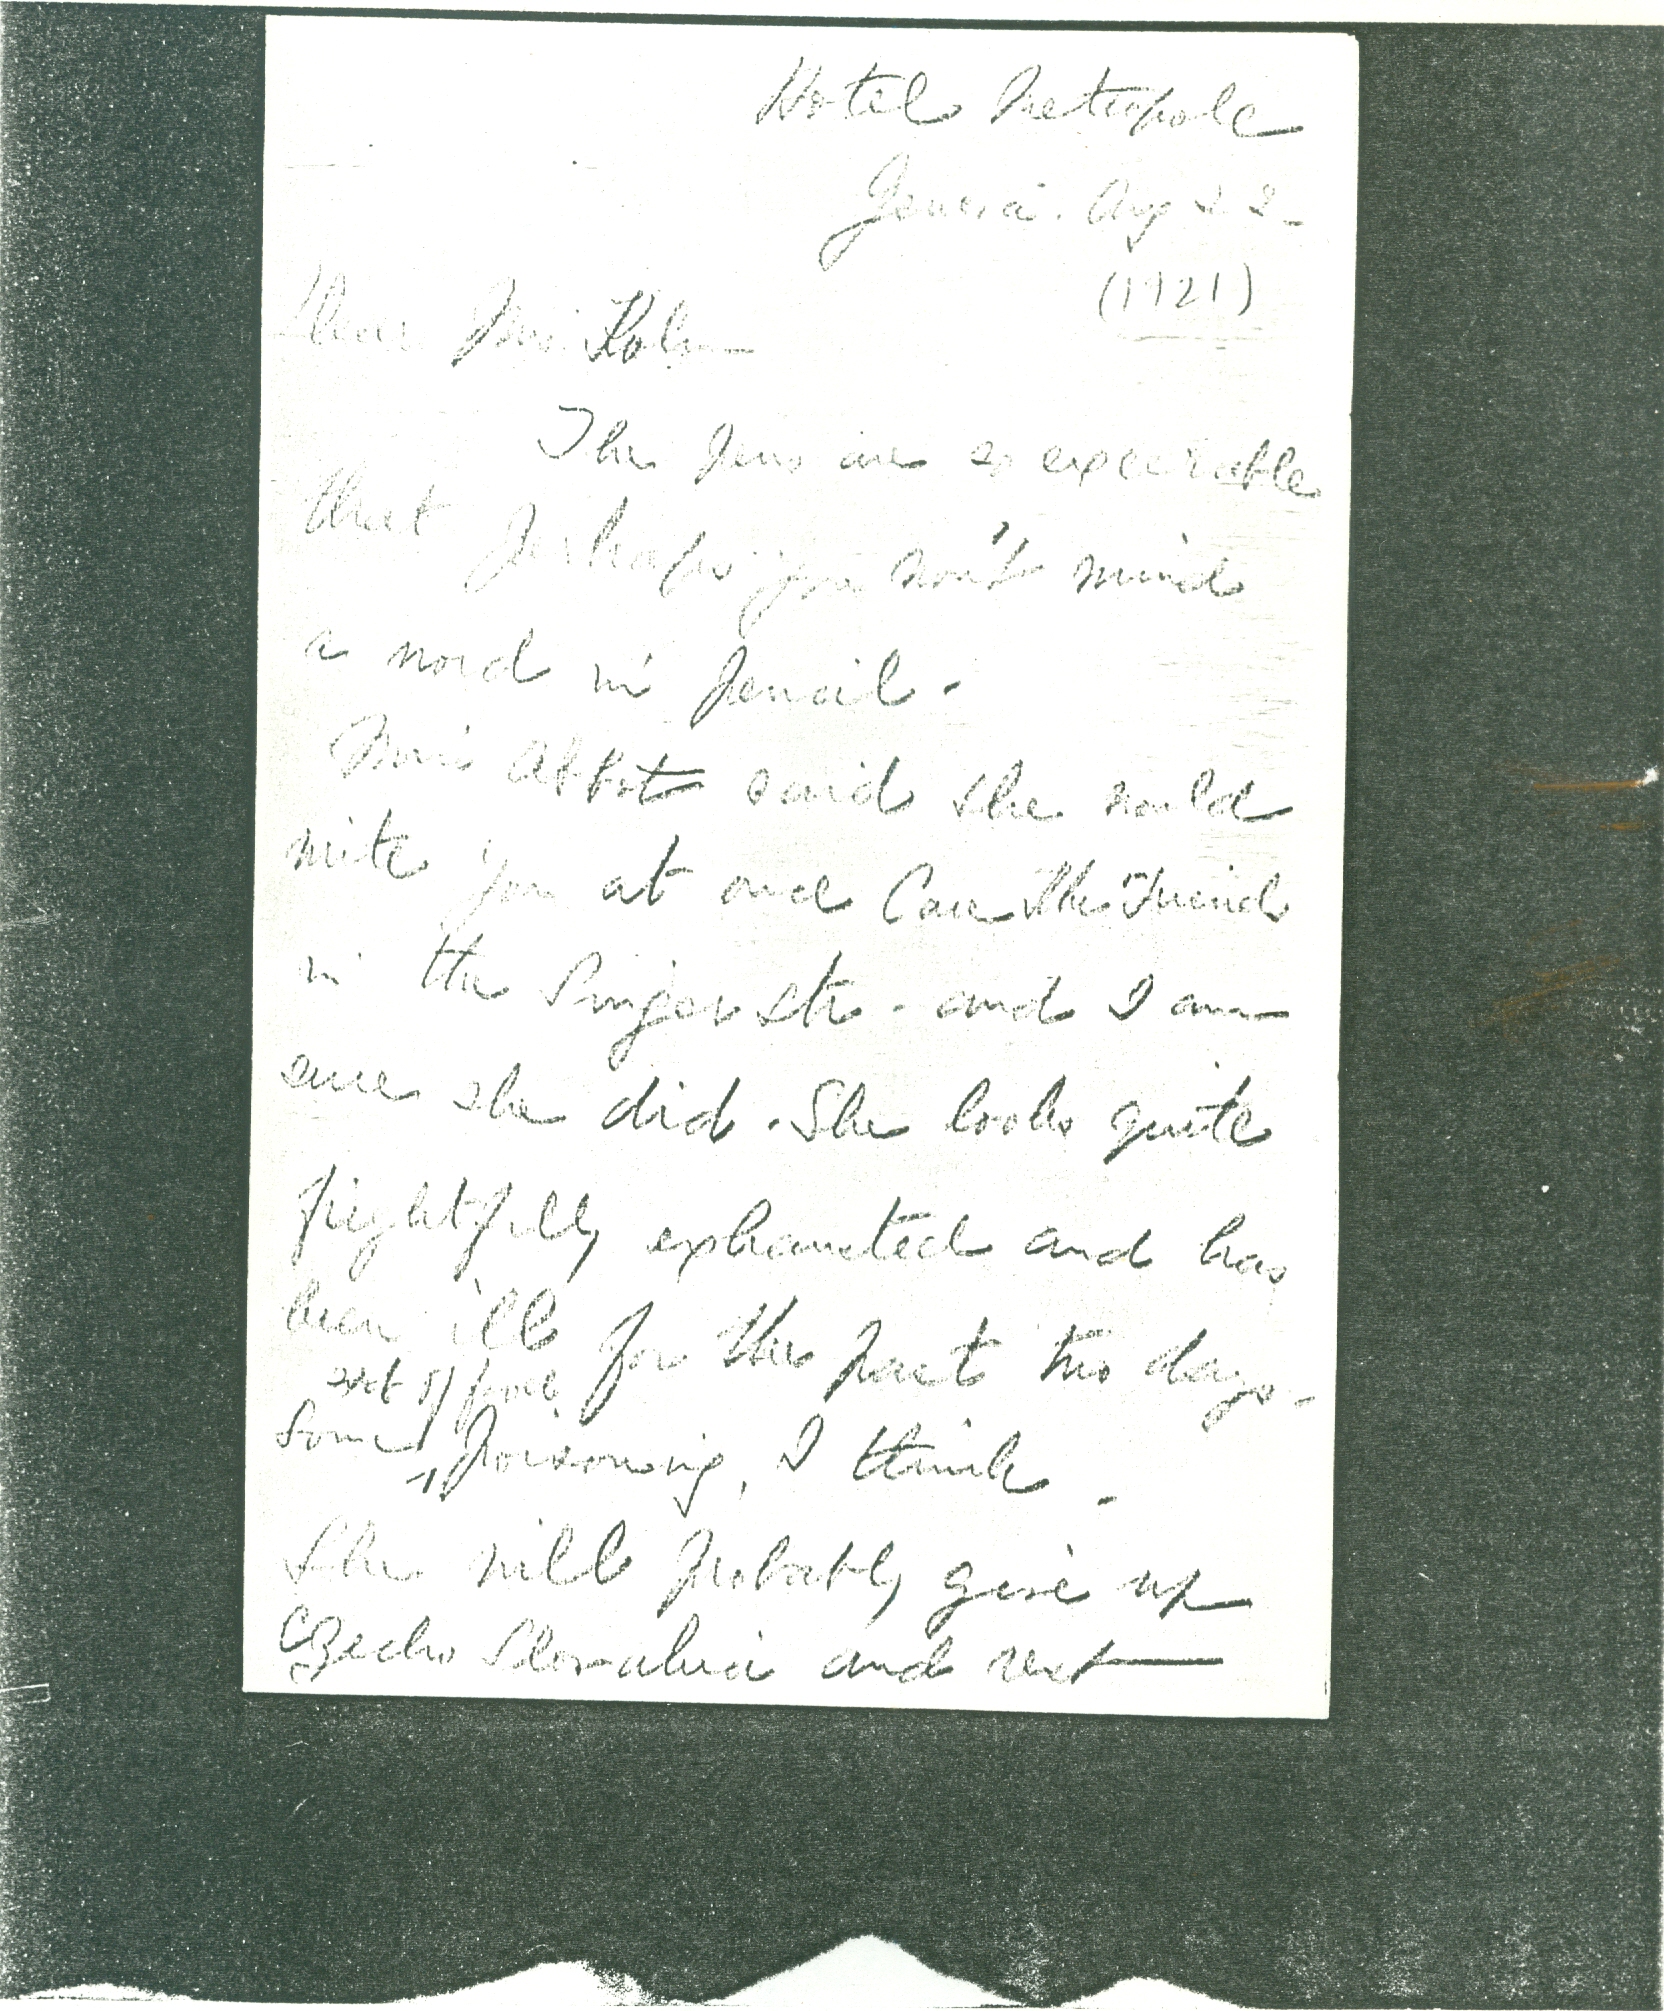 Hotel Metropole
Geneva. Aug 22
(1921)
Dear Mrs. Kohn
The pens are so execrable
that perhaps you won't mind
a word in pencil.
Miss Abbot said she would
write you at once Care The Friends
in the Singer Str. and I am
sure she did. She looks quite
frightfully exhausted and has
been ill for the past two days.
sort of food
Some poisoning, I think.
She will probably give up
Czecho Slovakia and rest